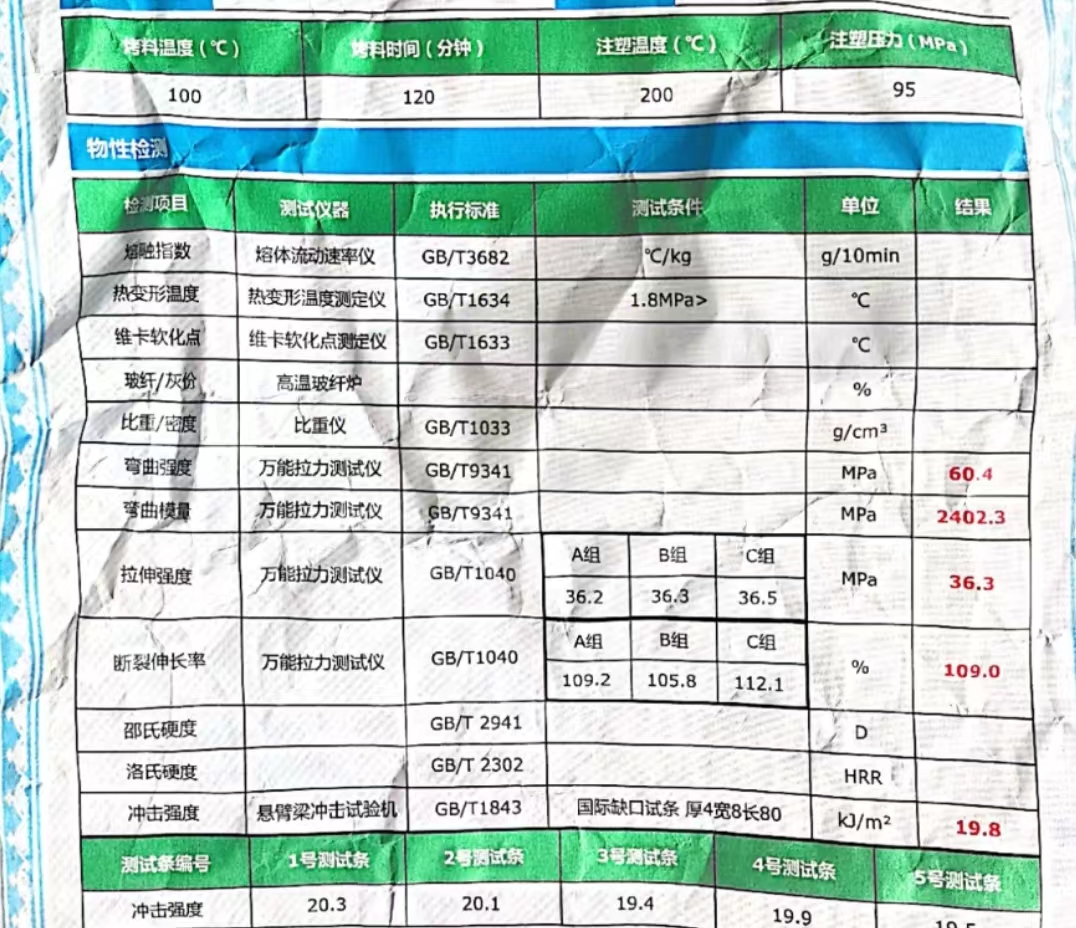 烤料温度（℃） 烤料时间（分钟） 注塑温度（℃） 注塑压力（MPa）
100 120 200 95
物性检测
检测项目 测试仪器 执行标准 测试条件 单位 结果
熔融指数 熔体流动速率仪 GB/T3682 ℃/kg g/10min
热变形温度 热变形温度测定仪 GB/T1634 1.8MPa> ℃
维卡软化点 维卡软化点测定仪 GB/T1633 ℃
玻纤/灰份 高温玻纤炉 %
比重/密度 比重仪 GB/T1033 g/cm³
弯曲强度 万能拉力测试仪 GB/T9341 MPa 60.4
弯曲模量 万能拉力测试仪 GB/T9341 MPa 2402.3
A组 B组 C组
拉伸强度 万能拉力测试仪 GB/T1040 MPa 36.3
36.2 36.3 36.5
A组 B组 C组
断裂伸长率 万能拉力测试仪 GB/T1040 % 109.0
109.2 105.8 112.1
邵氏硬度 GB/T 2941 D
洛氏硬度 GB/T 2302 HRR
冲击强度 悬臂梁冲击试验机 GB/T1843 国际缺口试条 厚4宽8长80 kJ/m² 19.8
测试条编号 1号测试条 2号测试条 3号测试条 4号测试条 5号测试条
冲击强度 20.3 20.1 19.4 19.9